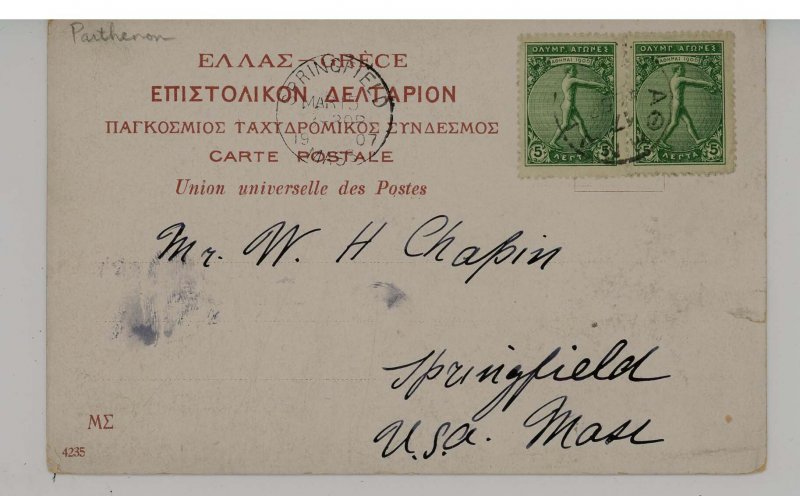 Parthenon
ΕΛΛΑΣ–GRÈCE
ΕΠΙΣΤΟΛΙΚΟΝ ΔΕΛΤΑΡΙΟΝ
ΠΑΓΚΟΣΜΙΟΣ ΤΑΧΥΔΡΟΜΙΚΟΣ ΣΥΝΔΕΣΜΟΣ
CARTE POSTALE
Union universelle des Postes
SPRINGFIELD
MAR
19 07
MASS
ΟΛΥΜΠ. ΑΓΩΝΕΣ
ΑΘΗΝΑΙ 1906
5 ΛΕΠΤΑ 5
ΟΛΥΜΠ. ΑΓΩΝΕΣ
ΑΘΗΝΑΙ 1906
5 ΛΕΠΤΑ 5
ΑΘ
Mr. W. H Chapin
Springfield
U.S.a. Mass
ΜΣ
4235